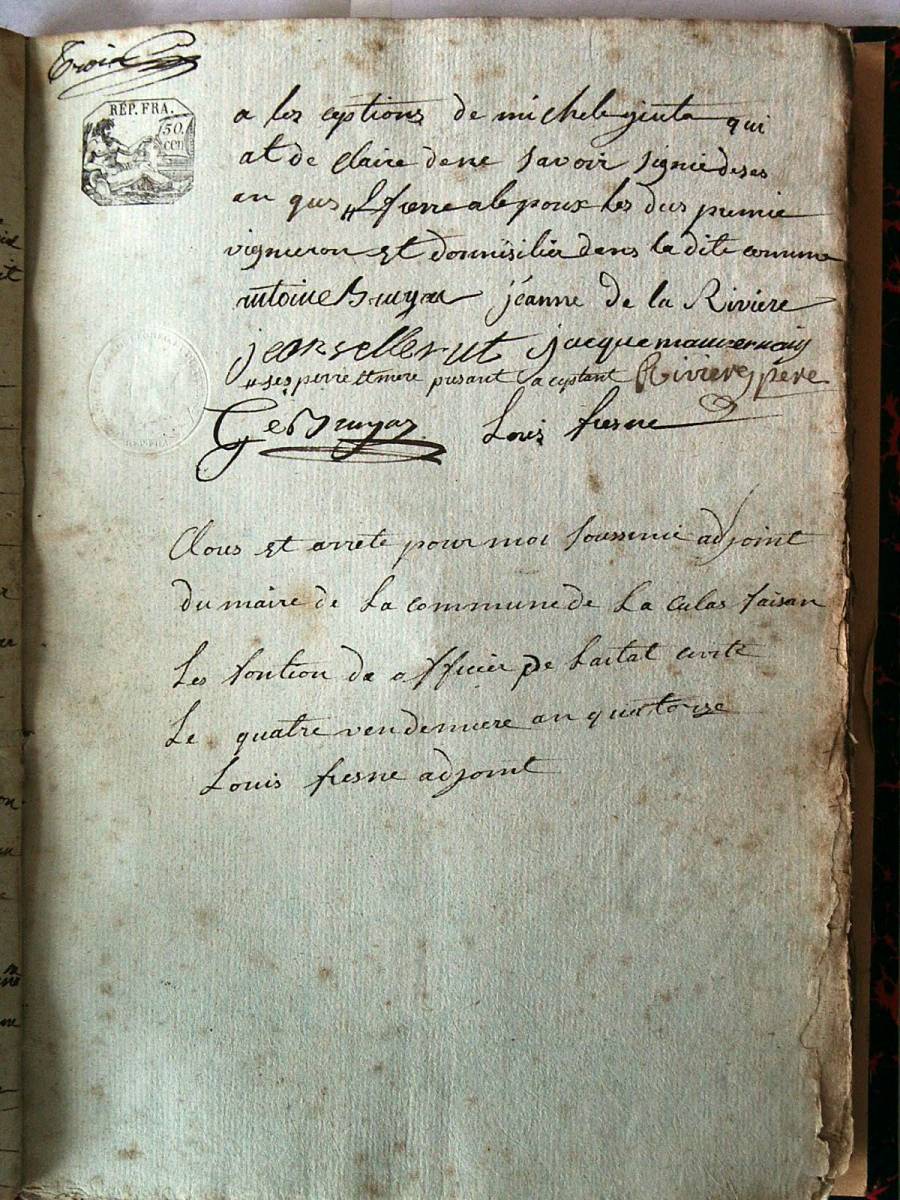 Trois
REP. FRA.
50. cen
a les ceptions de michel genta qui
at de Claire de ne savoir signié de ses
an qui #f fierre a le poux les dus premie
vigneron et domisilier dans la dite comune
antoine Bruyas jéanne de la Rivière
jean sellerut jacque mauvernay
# ses perre et mere presant acceptant Riviere père
G e Bruyas Louis fresne
Clous et arreté pour moi soussinié adjoint
du maire de la commune de la Culas faisan
les fontion de officier de Laitat civile
Le quatre vendemiere an quatorze
Louis fresne adjoint